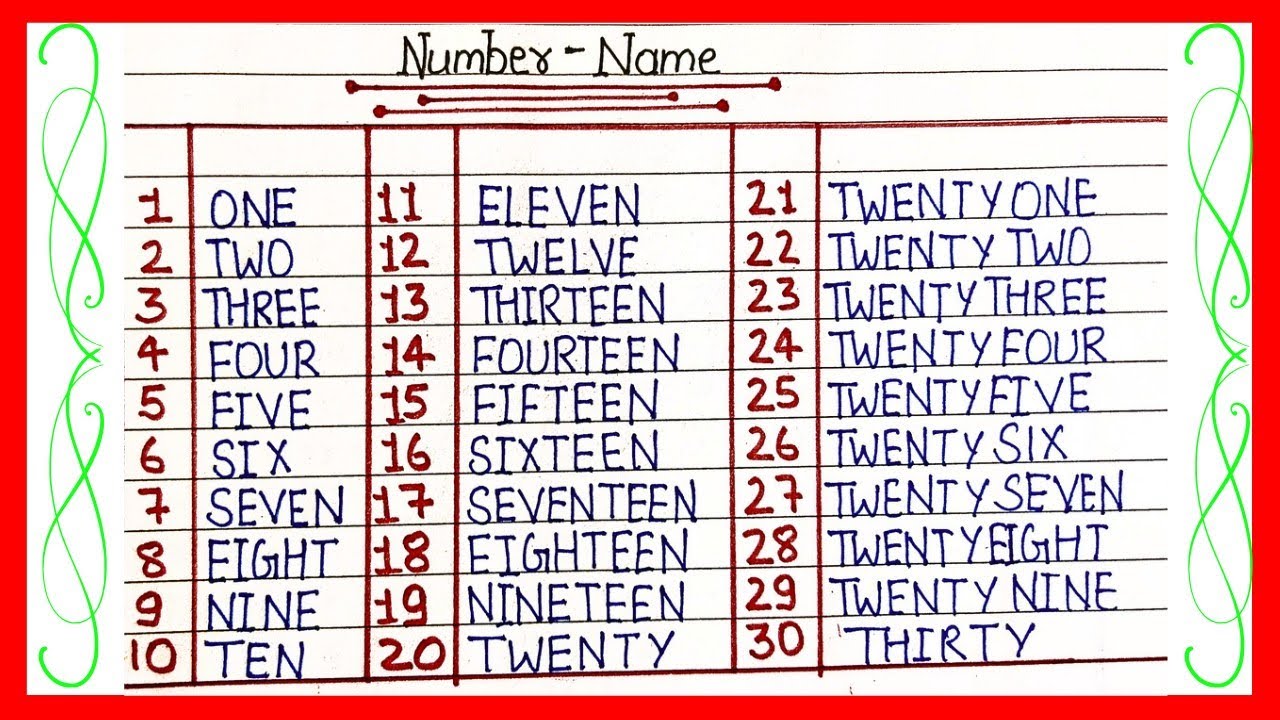 Number - Name
1 ONE 11 ELEVEN 21 TWENTY ONE
2 TWO 12 TWELVE 22 TWENTY TWO
3 THREE 13 THIRTEEN 23 TWENTY THREE
4 FOUR 14 FOURTEEN 24 TWENTY FOUR
5 FIVE 15 FIFTEEN 25 TWENTY FIVE
6 SIX 16 SIXTEEN 26 TWENTY SIX
7 SEVEN 17 SEVENTEEN 27 TWENTY SEVEN
8 EIGHT 18 EIGHTEEN 28 TWENTY EIGHT
9 NINE 19 NINETEEN 29 TWENTY NINE
10 TEN 20 TWENTY 30 THIRTY